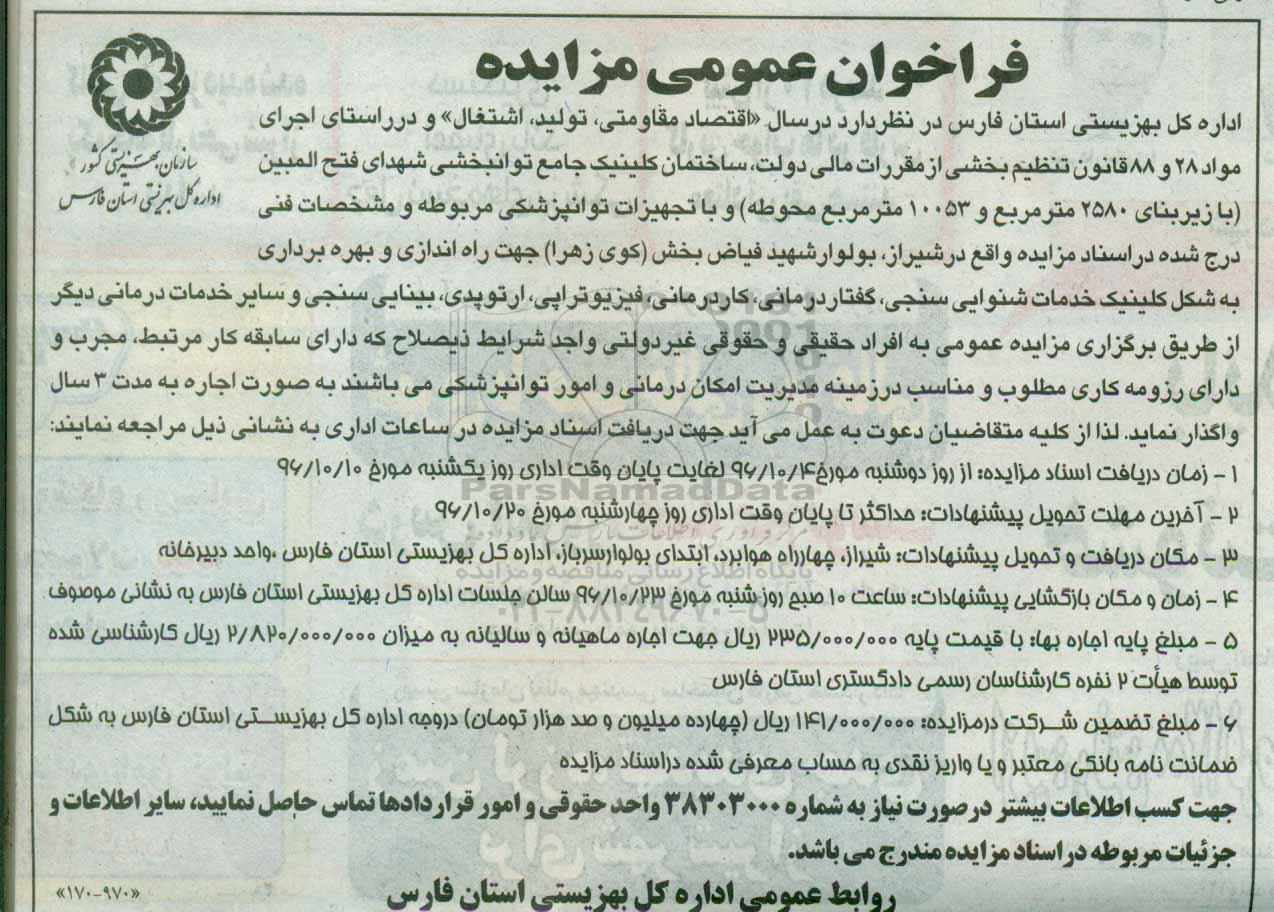 فراخوان عمومی مزایده
سازمان بهزیستی کشور
اداره کل بهزیستی استان فارس
اداره کل بهزیستی استان فارس در نظردارد درسال «اقتصاد مقاومتی، تولید، اشتغال» و درراستای اجرای
مواد ۲۸ و ۸۸ قانون تنظیم بخشی از مقررات مالی دولت، ساختمان کلینیک جامع توانبخشی شهدای فتح المبین
(با زیربنای ۲۵۸۰ مترمربع و ۱۰۰۵۳ مترمربع محوطه) و با تجهیزات توانپزشکی مربوطه و مشخصات فنی
درج شده دراسناد مزایده واقع درشیراز، بولوارشهید فیاض بخش (کوی زهرا) جهت راه اندازی و بهره برداری
به شکل کلینیک خدمات شنوایی سنجی، گفتاردرمانی، کاردرمانی، فیزیوتراپی، ارتوپدی، بینایی سنجی و سایر خدمات درمانی دیگر
از طریق برگزاری مزایده عمومی به افراد حقیقی و حقوقی غیردولتی واجد شرایط ذیصلاح که دارای سابقه کار مرتبط، مجرب و
دارای رزومه کاری مطلوب و مناسب درزمینه مدیریت امکان درمانی و امور توانپزشکی می باشند به صورت اجاره به مدت ۳ سال
واگذار نماید. لذا از کلیه متقاضیان دعوت به عمل می آید جهت دریافت اسناد مزایده در ساعات اداری به نشانی ذیل مراجعه نمایند:
۱ - زمان دریافت اسناد مزایده: از روز دوشنبه مورخ ۹۶/۱۰/۴ لغایت پایان وقت اداری روز یکشنبه مورخ ۹۶/۱۰/۱۰
ParsNamadData
۲ - آخرین مهلت تحویل پیشنهادات: حداکثر تا پایان وقت اداری روز چهارشنبه مورخ ۹۶/۱۰/۲۰
۳ - مکان دریافت و تحویل پیشنهادات: شیراز، چهارراه هوابرد، ابتدای بولوارسرباز، اداره کل بهزیستی استان فارس ،واحد دبیرخانه
پایگاه اطلاع رسانی مناقصه و مزایده
۴ - زمان و مکان بازگشایی پیشنهادات: ساعت ۱۰ صبح روز شنبه مورخ ۹۶/۱۰/۲۳ سالن جلسات اداره کل بهزیستی استان فارس به نشانی موصوف
۰۲۱-۸۸۳۴۹۶۷۰-۵
۵ - مبلغ پایه اجاره بها: با قیمت پایه ۲۳۵/۰۰۰/۰۰۰ ریال جهت اجاره ماهیانه و سالیانه به میزان ۲/۸۲۰/۰۰۰/۰۰۰ ریال کارشناسی شده
توسط هیأت ۲ نفره کارشناسان رسمی دادگستری استان فارس
۶ - مبلغ تضمین شرکت درمزایده: ۱۴۱/۰۰۰/۰۰۰ ریال (چهارده میلیون و صد هزار تومان) دروجه اداره کل بهزیستی استان فارس به شکل
ضمانت نامه بانکی معتبر و یا واریز نقدی به حساب معرفی شده دراسناد مزایده
جهت کسب اطلاعات بیشتر درصورت نیاز به شماره ۳۸۳۰۳۰۰۰ واحد حقوقی و امور قراردادها تماس حاصل نمایید، سایر اطلاعات و
جزئیات مربوطه دراسناد مزایده مندرج می باشد.
روابط عمومی اداره کل بهزیستی استان فارس
«۱۷۰-۹۷۰»